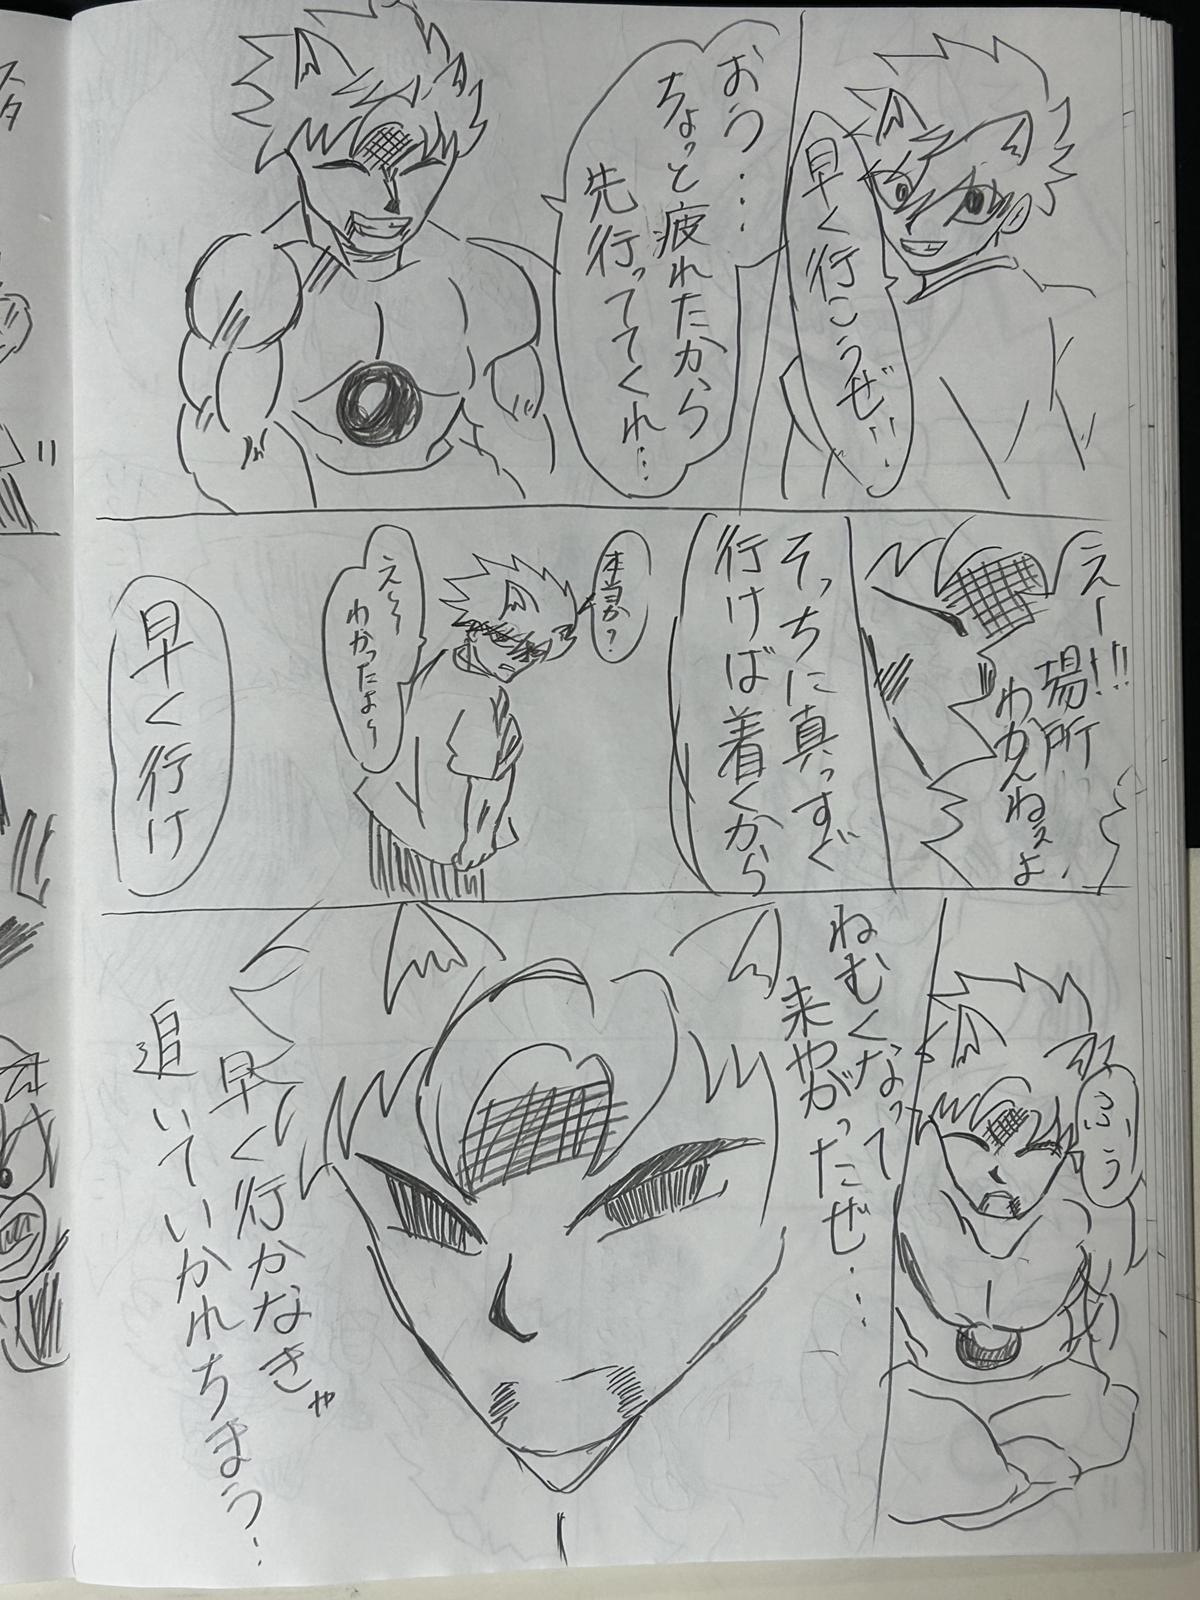 早く行こうぜ!!
おう…
ちょっと疲れたから
先行っててくれ…
えー!!
場所
わかんねぇよ
そっちに真っすぐ
行けば着くから
本当か?
え〜
わかったよ〜
早く行け
ふぅ
ねむくなって
来やがったぜ…
早く行かなきゃ
追いていかれちまう…
スタ